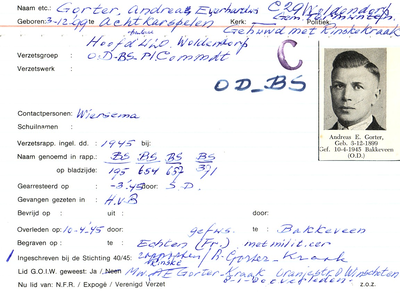 Naam etc.: Gorter, Andreas Everhardus C29 Woldendorp
Geboren 3-12-99 te Achtkarspelen Kerk: Politiek:
Gehuwd met Rinske Kraak
Hoofd L.O. Woldendorp
Verzetsgroep O.D-B.S-Pl Commdt
Verzetswerk
C
OD_BS
Contactpersonen: Wiersema
Schuilnamen:
Verzetsrapp. ingel. dd. 1945 bij:
Naam genoemd in rapp.: BS BS BS BS
op bladzijde: 195 654 657 371
Gearresteerd op -3-'45 door: S.D.
Gevangen gezeten in H.v.B
Bevrijd op : uit door:
Overleden op 10-4-'45 door: gefus. te Bakkeveen
Begraven op : te Echten (Fr.) met mil. eer
Ingeschreven bij de Stichting 40/45: R. Gorter-Kraak
Lid G.O.I.W. geweest: Ja / Neen Mw. AE Gorter-Kraak Winschoten
Nu lid van: N.F.R. / Expogé / Verenigd Verzet overleden z.o.z.
Andreas E. Gorter,
Geb. 3-12-1899
Gef. 10-4-1945 Bakkeveen
(O.D.)